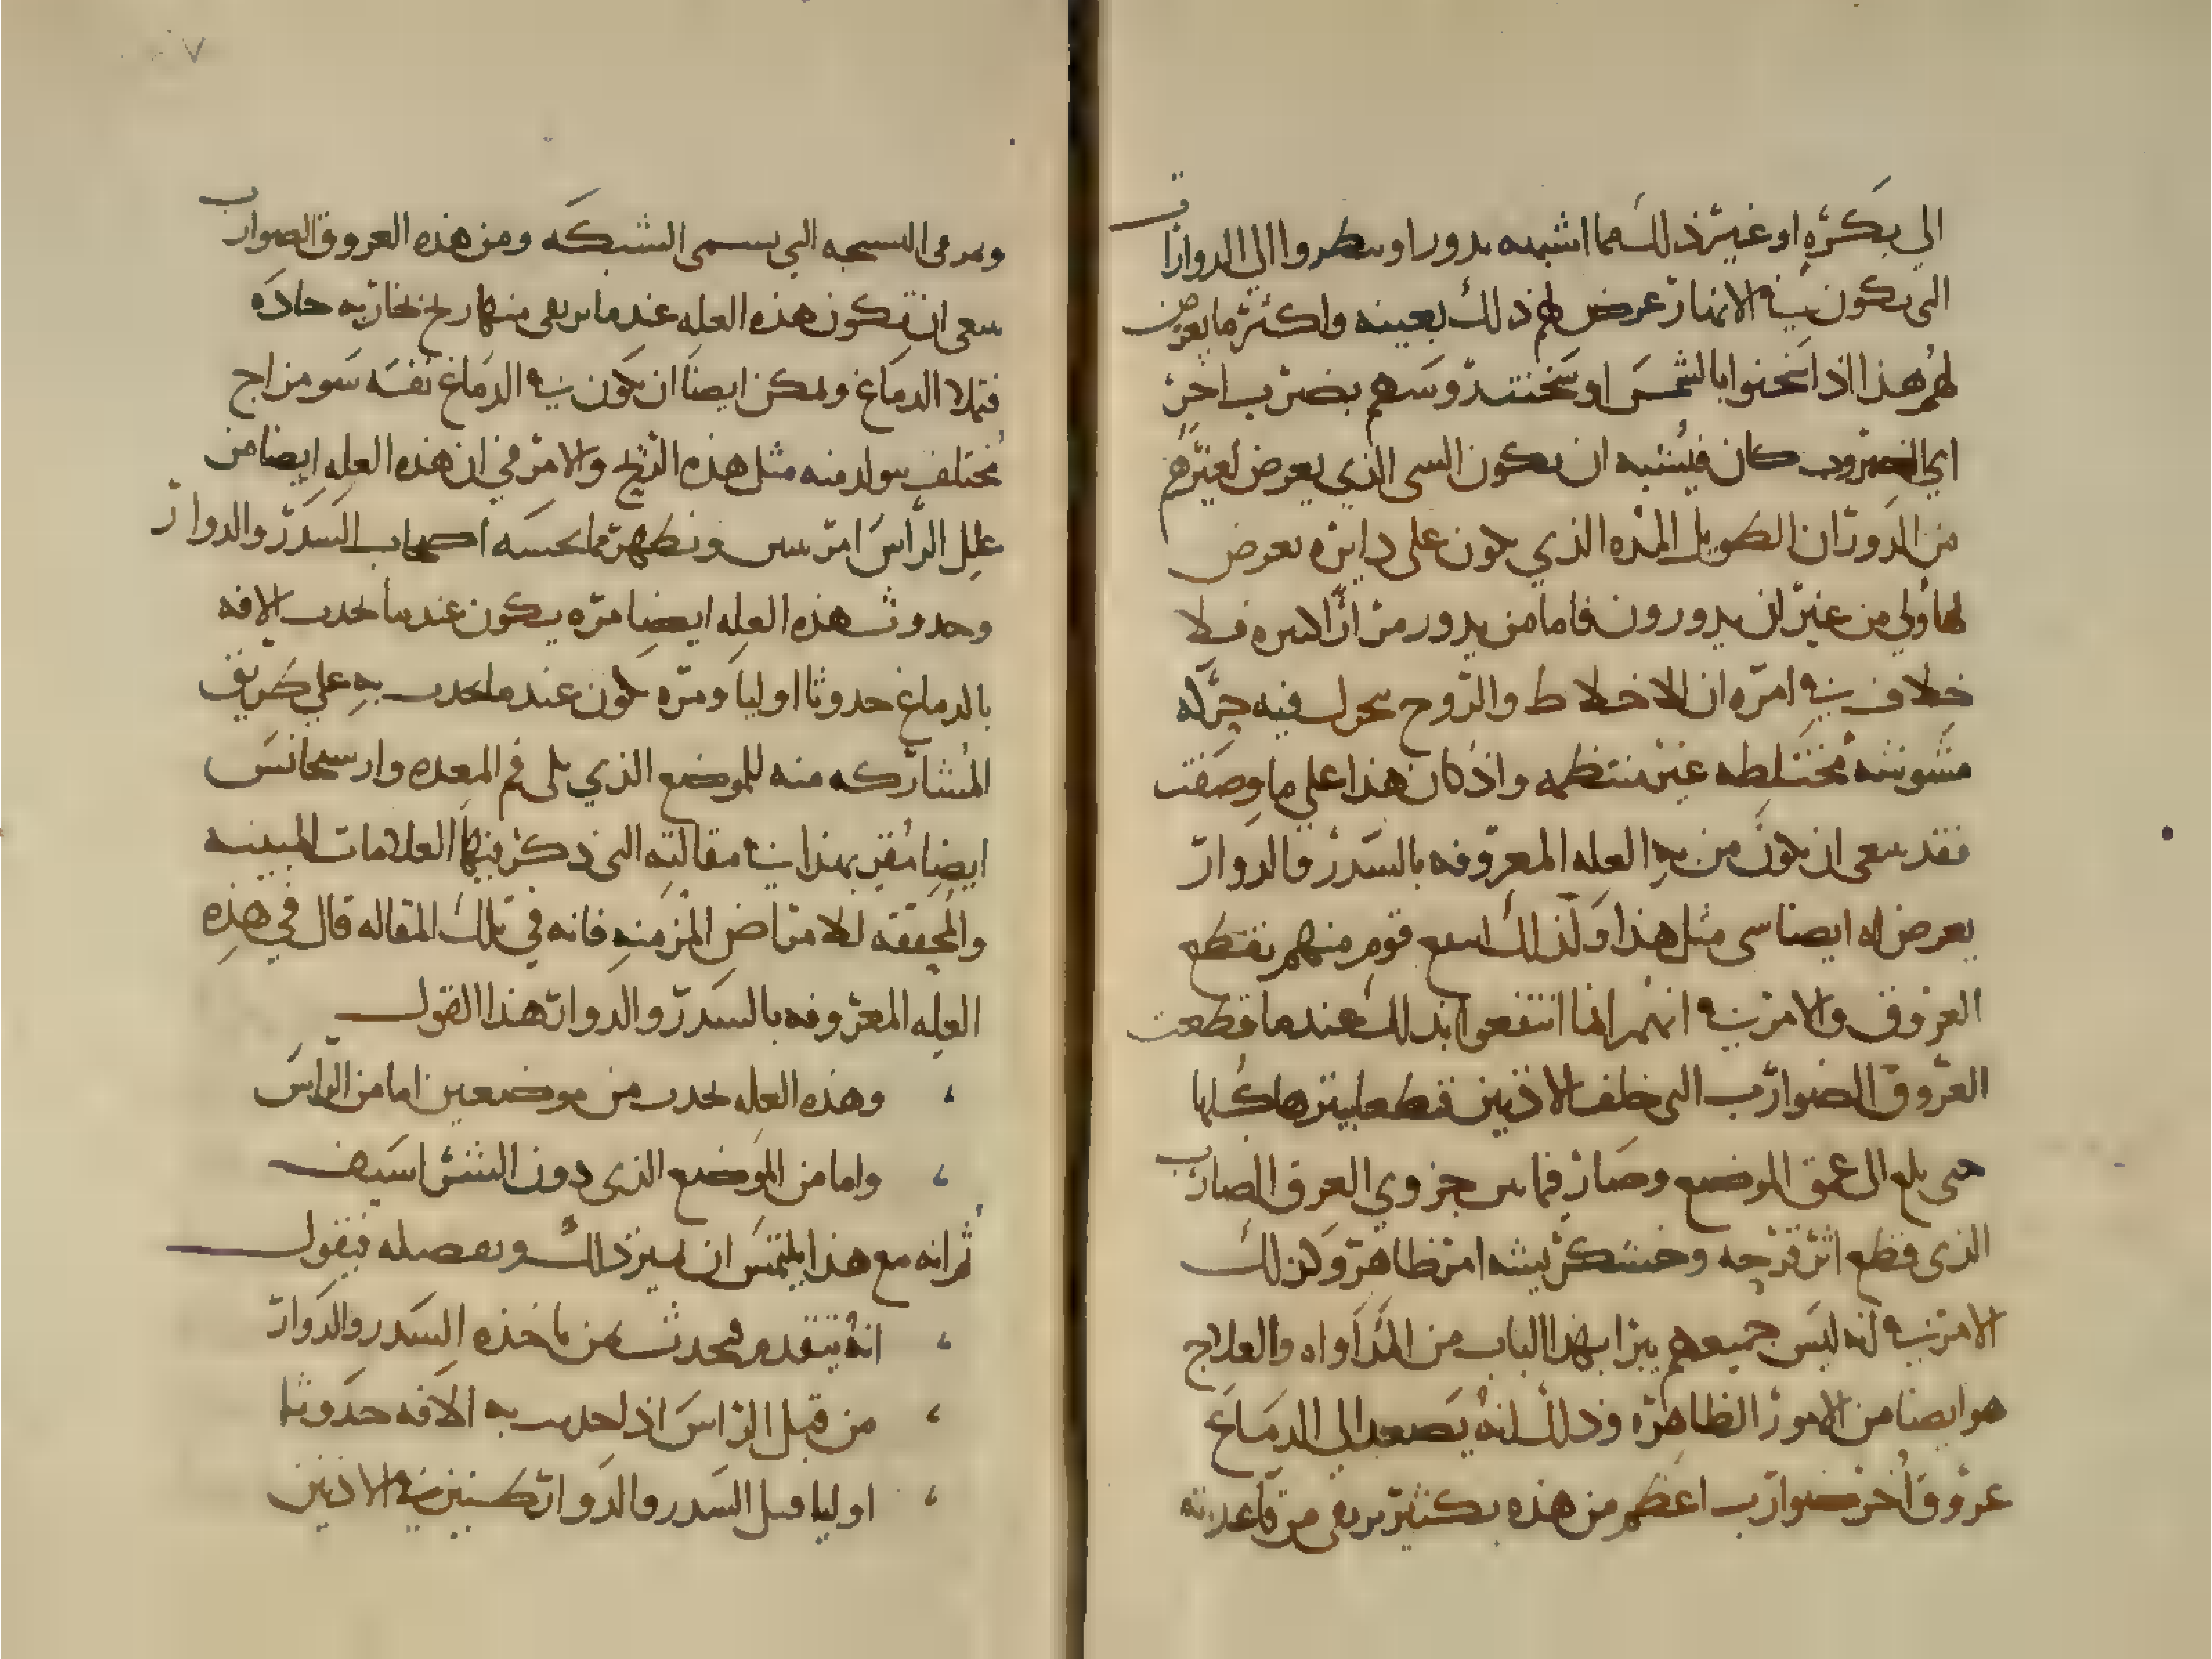 الى بكره او غير ذلك مما اشبهه يدور او ينظروا الى الدوارات
التى يكون فى الانهار عرض لهم ذلك بعينه واكثر ما يعرض
لهم هذا اذا سخنوا بالشمس او سخنت روسهم بضرب اخر
اى الضروب كان فيشبه ان يكون الشى الذي يعرض لغيرهم
من الدوران الطويل المده الذي يكون على دايره يعرض
لهاولي من غير ان يدورون فاما من يدور مرارا كثيره فلا
خلاف فى امره ان الاخلاط والروح يتحرك فيه حركه
مشوشه مختلطه غير منتظمه واذ كان هذا على ما وصفت
فقد ينبغى ان يكون من به العله المعروفه بالسدر والدوار
يعرض له ايضا شى مثل هذا ولذلك انتفع قوم منهم بقطع
العروق والامر فى انهم انما انتفعوا بذلك عندما قطعت
العروق الضوارب التى خلف الاذنين قطعا يبترها كلها
حتى بلغ الى عمق الموضع وصار فيما بين جزوي العرق الضارب
الذى قطع اثر قرحه وخشكريشه امر ظاهر وكذلك
الامر فى انه ليس جميعهم يبرا بهذا الباب من المداواه والعلاج
هو ايضا من الامور الظاهره وذلك انه يصعد الى الدماغ
عروق اخر ضوارب اعظم من هذه بكثير ترتقى من قاعدته
وتمر فى النسيجه التى تسمى الشبكه ومن هذه العروق الضوارب
ينبغى ان تكون هذه العله عندما ترتقى منها ريح بخاريه حاده
فتملا الدماغ ويمكن ايضا ان يكون فى الدماغ نفسه سو مزاج
مختلف يتولد منه مثل هذه الريح والامر في ان هذه العله ايضا من
علل الراس امر بين ونظهر مما يحسه اصحاب السدر والدوار
وحدوث هذه العله ايضا مره يكون عندما تحدث الافه
بالدماغ حدوثا اوليا ومره يكون عندما تحدث به على طريق
المشاركه منه للموضع الذي يلى فم المعده وارسيجانس
ايضا مقر بهذا فى مقالته التى ذكر فيها العلامات المبينه
والمحققه للامراض المزمنه فانه في تلك المقاله قال في هذه
العله المعروفه بالسدر والدوار هذا القول
وهذه العله تحدث من موضعين اما من الراس
واما من الموضع الذى دون الشراسيف
ثم انه مع هذا يلتمس ان يميز ذلك ويفصله فيقول
انه يتقدم فيحدث بمن ياخذه السدر والدوار
من قبل الراس اذا حدثت به الافه حدوثا
اوليا قبل السدر والدوار طنين فى الاذنين